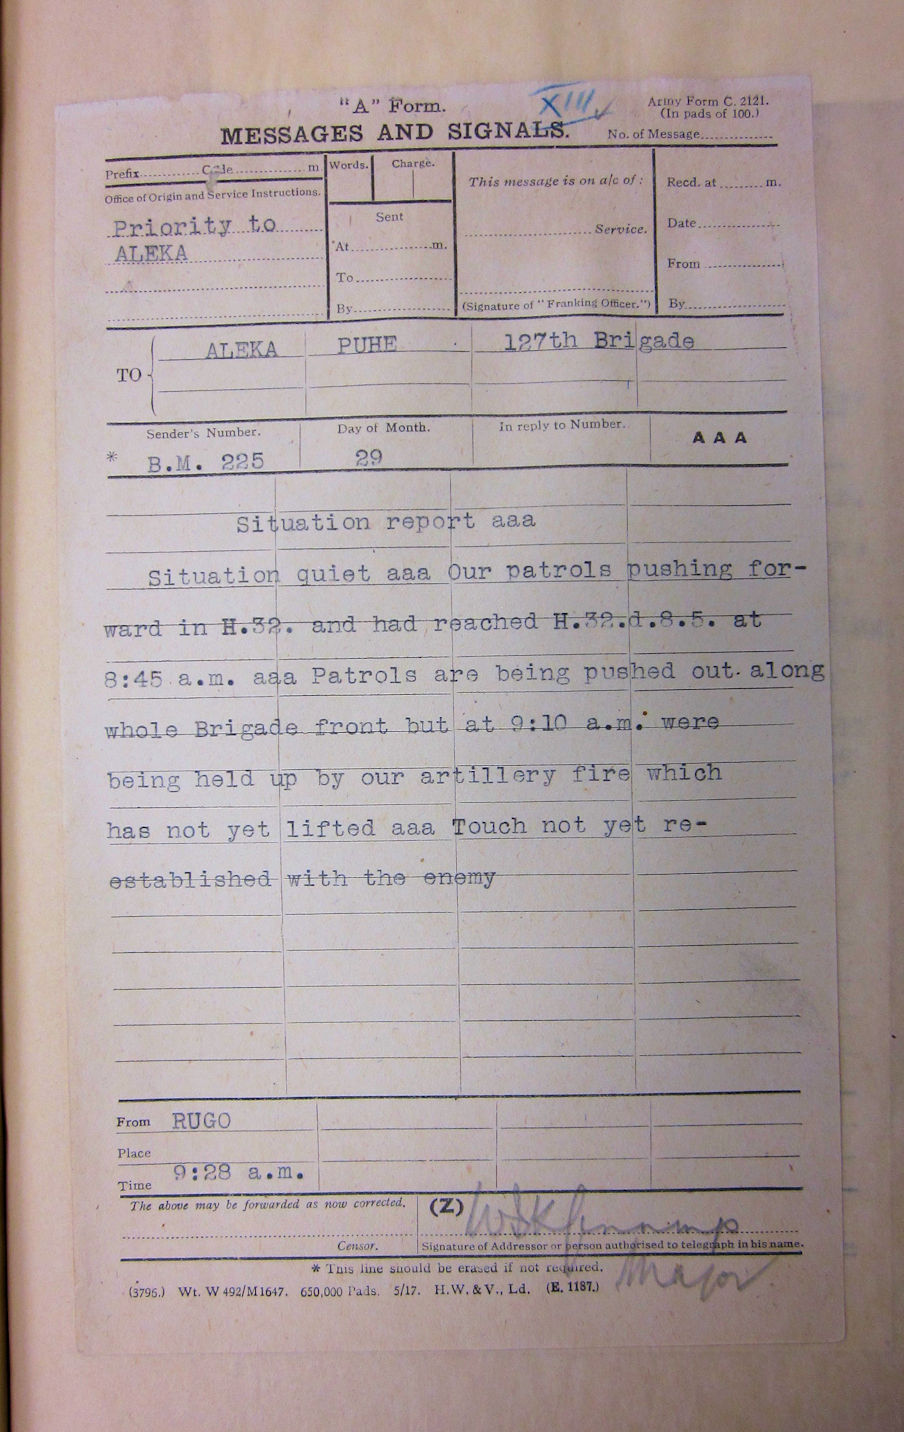 "A" Form.
XIII.
Army Form C. 2121.
(In pads of 100.)
MESSAGES AND SIGNALS.
No. of Message
Prefix Code m.
Words. Charge.
This message is on a/c of:
Recd. at m.
Office of Origin and Service Instructions.
Sent
Priority to
ALEKA
At m.
Service.
Date
To
From
By
(Signature of "Franking Officer.")
By
TO
ALEKA PUHE 127th Brigade
Sender's Number. Day of Month. In reply to Number.
AAA
* B.M. 225 29
Situation report aaa
Situation quiet aaa Our patrols pushing for-
ward in H.32. and had reached H.32.d.8.5. at
8:45 a.m. aaa Patrols are being pushed out along
whole Brigade front but at 9:10 a.m. were
being held up by our artillery fire which
has not yet lifted aaa Touch not yet re-
established with the enemy
From RUGO
Place
Time 9:28 a.m.
The above may be forwarded as now corrected.
(Z)
Censor.
Signature of Addressor or person authorised to telegraph in his name.
* This line should be erased if not required.
Major
(3796.) Wt. W 492/M1647. 650,000 Pads. 5/17. H.W. & V., Ld. (E. 1187.)